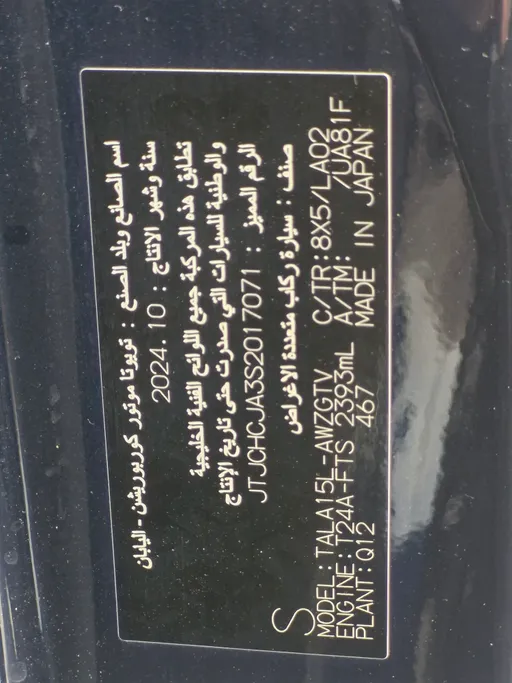 اسم الصانع وبلد الصنع : تويوتا موتور كوربوريشن - اليابان
سنة وشهر الانتاج : 2024.10
تطابق هذه المركبة جميع اللوائح الفنية الخليجية
والوطنية للسيارات التي صدرت حتى تاريخ الإنتاج
الرقم المميز : JTJCHCJA3S2017071
صنف : سيارة ركاب متعددة الاغراض
S
MODEL:TALA15L-AWZGTV C/TR:8X5/LA02
ENGINE:T24A-FTS 2393mL A/TM: /UA81F
PLANT:Q12 467 MADE IN JAPAN